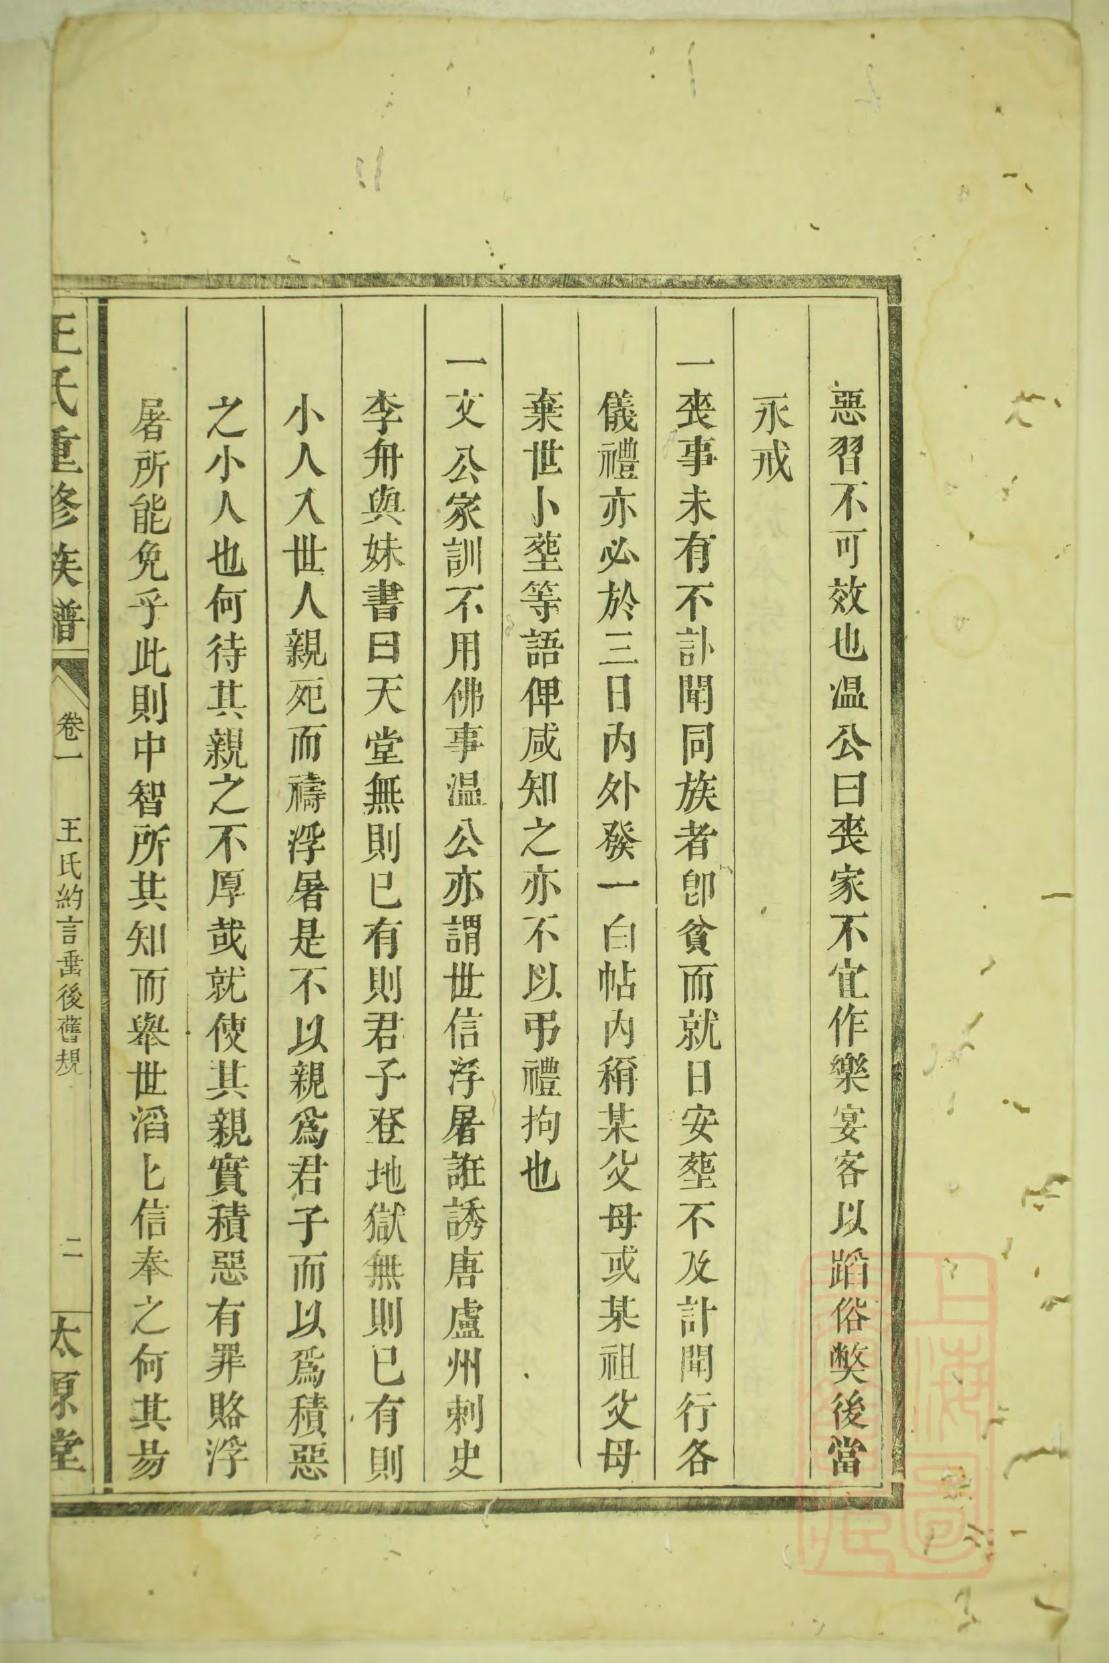 惡習不可效也温公曰喪家不宜作樂宴客以蹈俗弊後當
永戒
一喪事未有不訃聞同族者卽貧而就日安塟不及訃聞行各
儀禮亦必於三日內外發一白帖內稱某父母或某祖父母
棄世卜塟等語俾咸知之亦不以弔禮拘也
一文公家訓不用佛事温公亦謂世信浮屠誑誘唐盧州刺史
李舟與妹書曰天堂無則已有則君子登地獄無則已有則
小人入世人親死而禱浮屠是不以親爲君子而以爲積惡
之小人也何待其親之不厚哉就使其親實積惡有罪賂浮
屠所能免乎此則中智所共知而舉世滔匕信奉之何其昜
王氏重修族譜
卷一
王氏約言垂後舊規
二
太原堂
上海圖書館藏